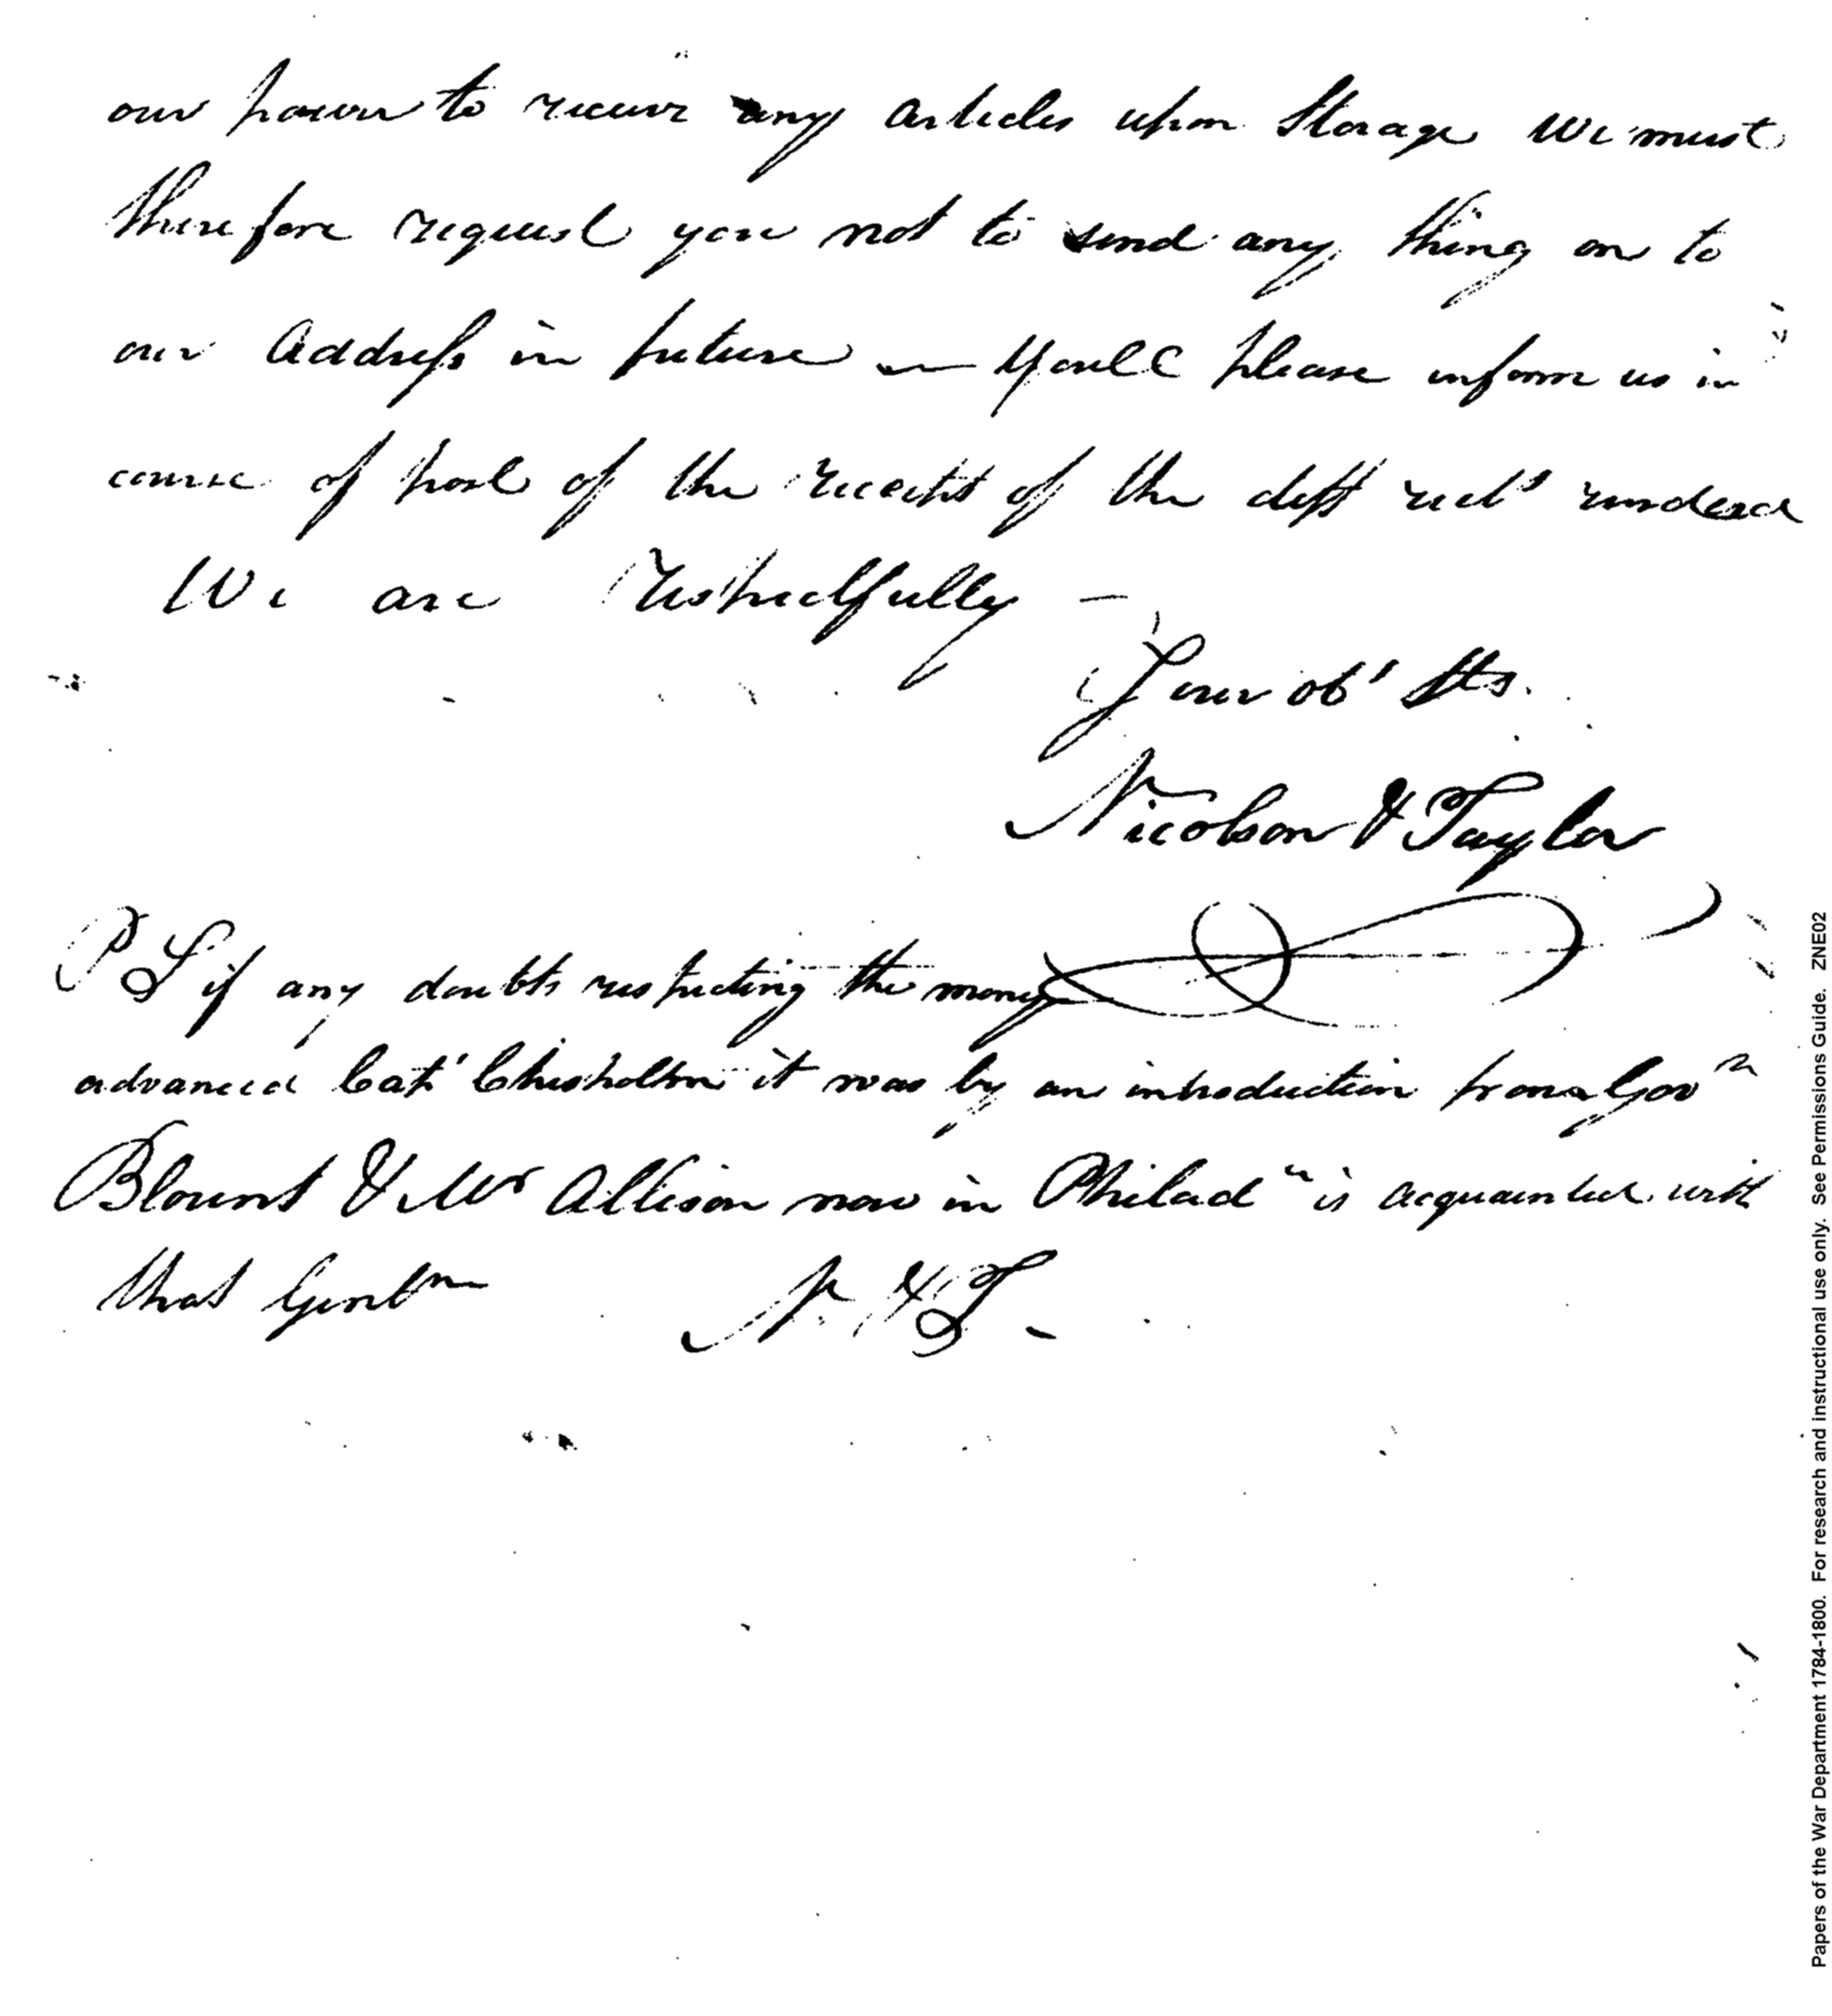 our power to receive any articles upon Storage We must
therefore request you not to send any thing on to
our Address in future — Youll please inform us in
course of post of the receipt of the difft acts rendered
We are respectfully —
Your obt Sts.
Nicolson & Taylor
PS if any doubts respecting the money
advanced Capt Chisholm it was by an introduction from Govr
Blount & Mr Allison now in Philada is acquainted with
that Gentm N. & T —
Papers of the War Department 1784-1800. For research and instructional use only. See Permissions Guide. ZNE02